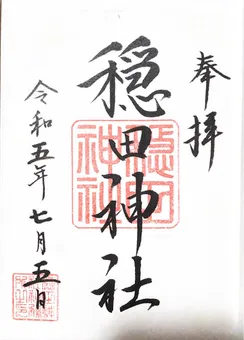 奉拝
穏田神社
令和五年七月五日
穏田
神社